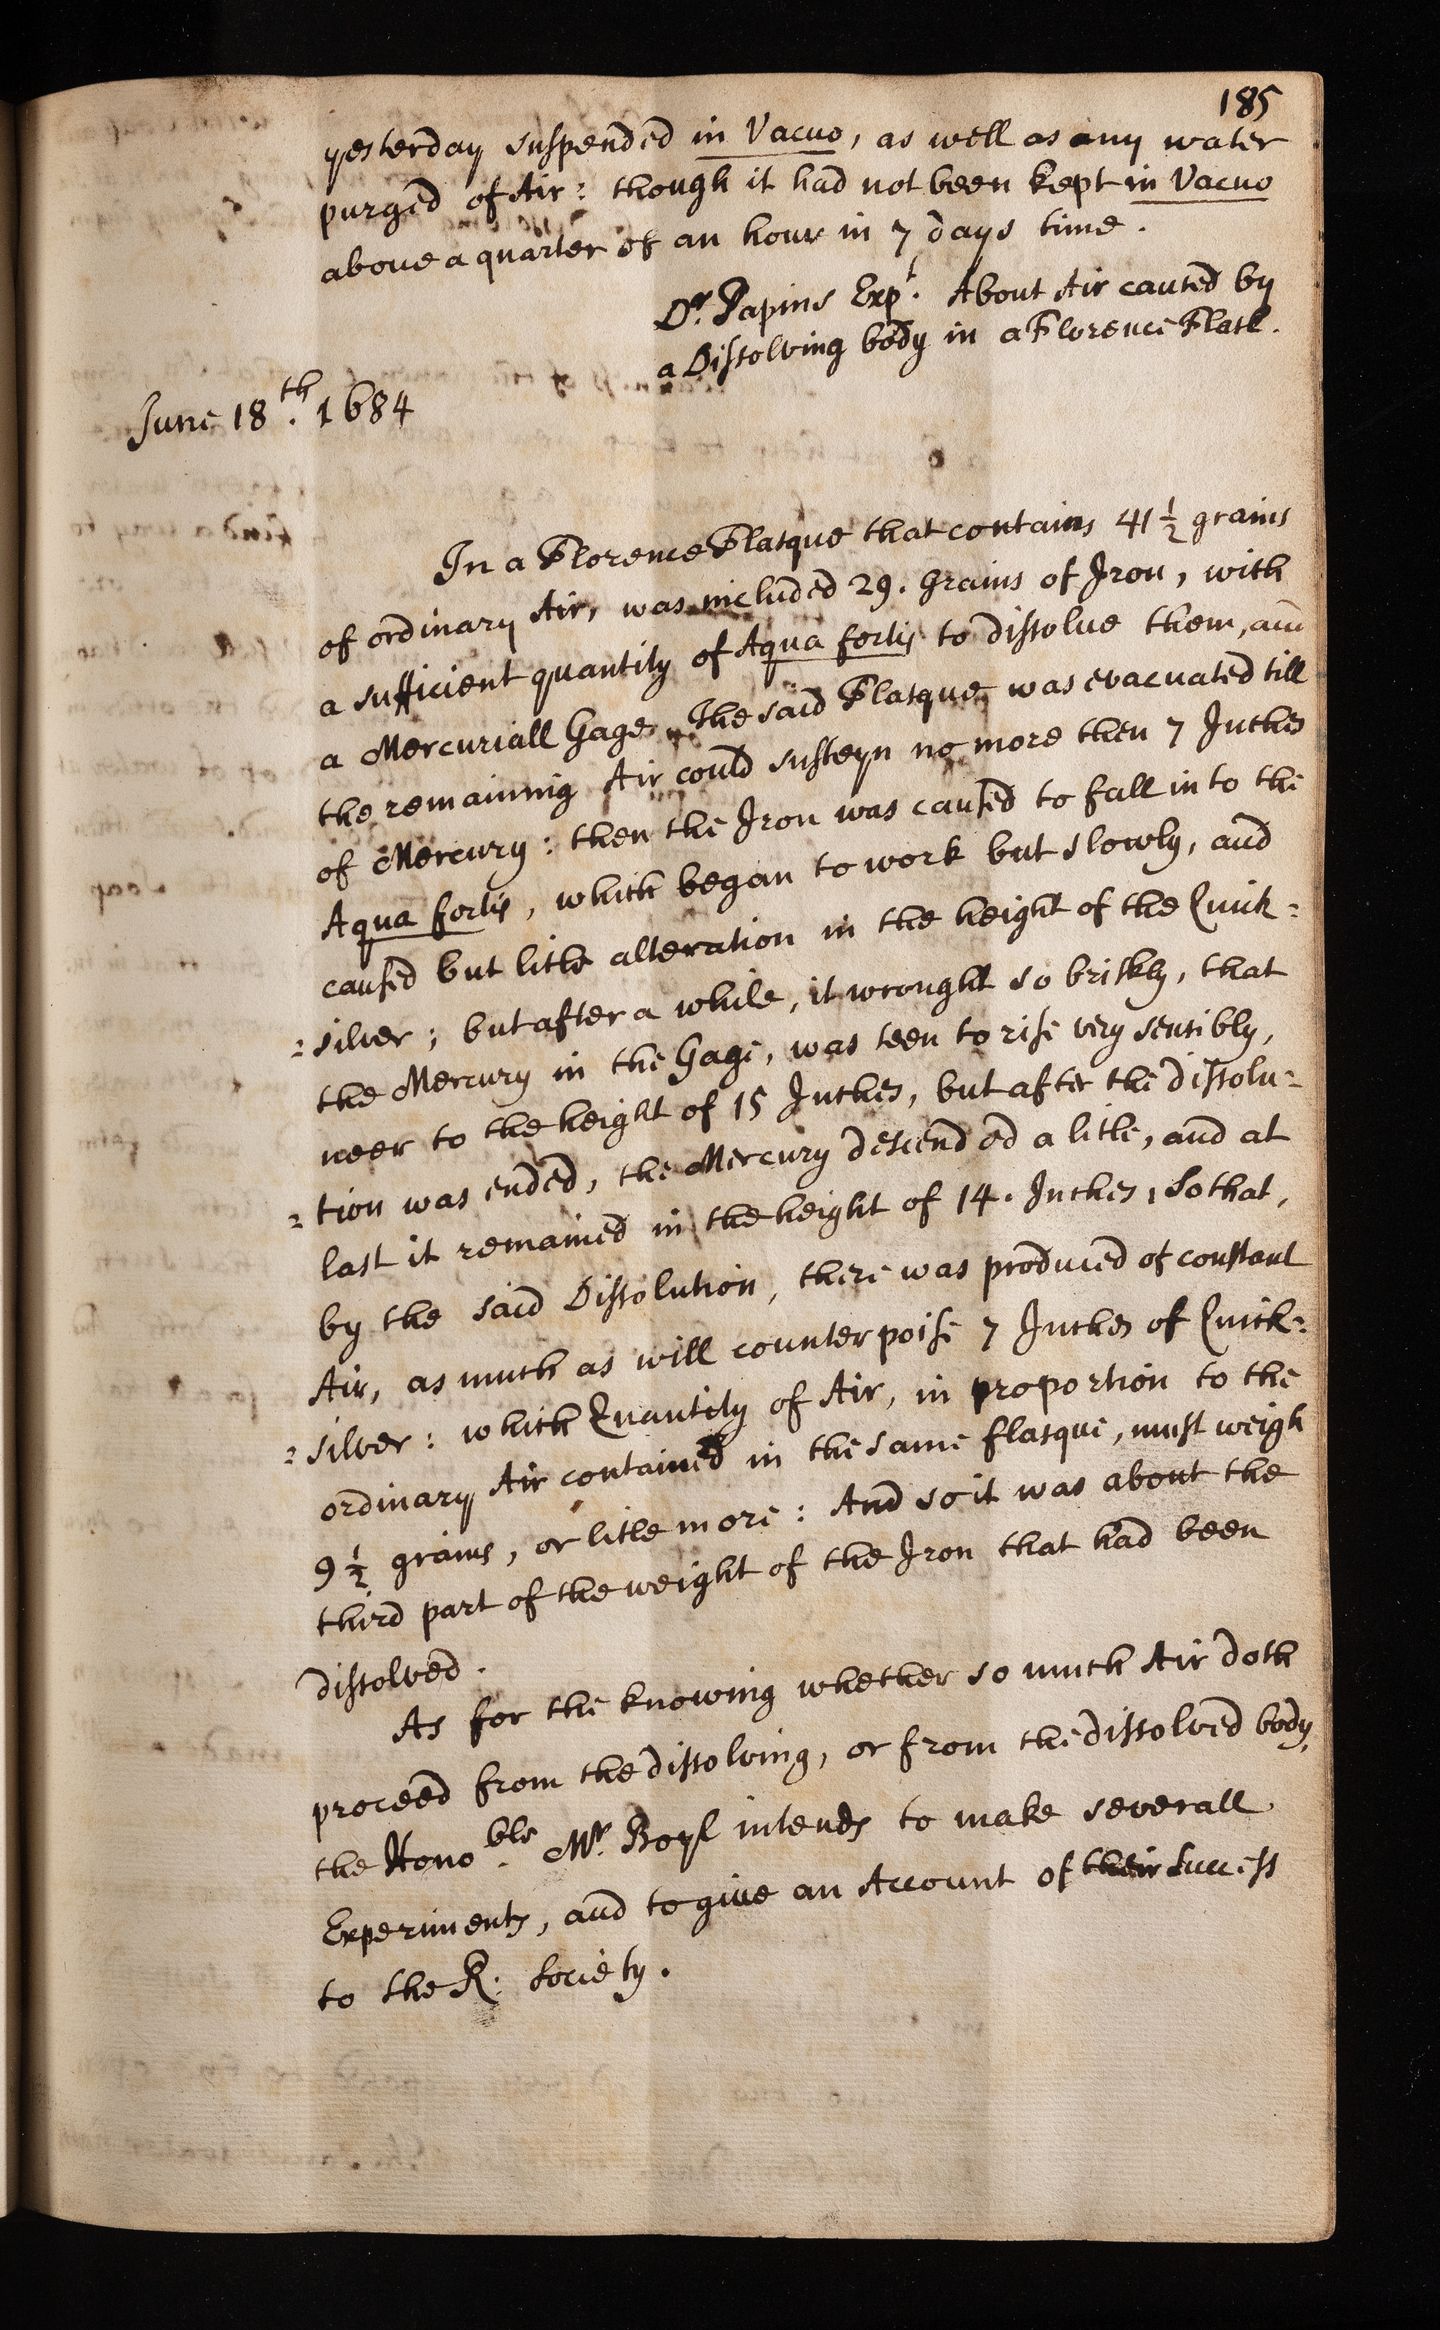 185
yesterday suspended in Vacuo, as well as any water
purged of Air: though it had not been kept in Vacuo
above a quarter of an hour in 7 days time.
Dr. Papins Expt. About Air caused by
a Dissolving body in a Florence Flask.
June 18th. 1684
In a Florence Flasque that contains 41 1/2 grains
of ordinary Air, was included 29. grains of Iron, with
a sufficient quantity of Aqua fortis to dissolve them, and
a Mercuriall Gage. The said Flasque was evacuated till
the remaining Air could susteyn no more then 7 Inches
of Mercury: then the Iron was caused to fall in to the
Aqua fortis, which began to work but slowly, and
caused but litle alteration in the height of the Quick=
=silver; but after a while, it wrought so briskly, that
the Mercury in the Gage, was seen to rise very sensibly,
neer to the height of 15 Inches, but after the dissolu=
=tion was ended, the Mercury descended a litle, and at
last it remained in the height of 14. Inches, So that,
by the said Dissolution, there was produced of constant
Air, as much as will counterpoise 7 Inches of Quick=
=silver: which Quantity of Air, in proportion to the
ordinary Air contained in the same flasque, must weigh
9 1/2 grains, or litle more: And so it was about the
third part of the weight of the Iron that had been
dissolved.
As for the knowing whether so much Air doth
proceed from the dissolving, or from the dissolved body,
the Honoble. Mr. Boyl intends to make severall
Experiments, and to give an Account of their Success
to the R. Society.